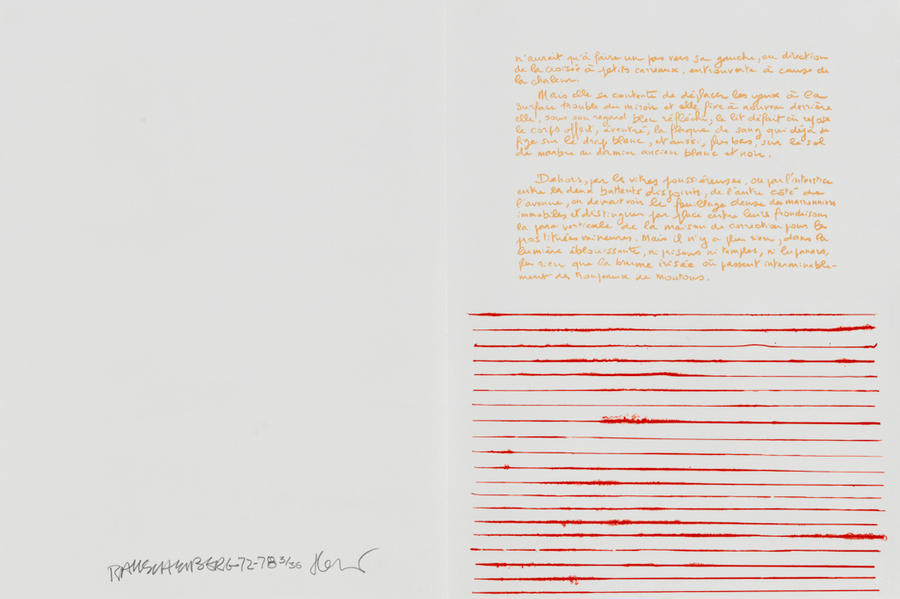 RAUSCHENBERG 72-78 3/36
n'aurait qu'à faire un pas vers sa gauche, en direction
de la croisée à petits carreaux, entrouverte à cause de
la chaleur.
Mais elle se contente de déplacer les yeux à la
surface trouble du miroir et elle fixe à nouveau derrière
elle, sous son regard bleu réfléchi, le lit défait où repose
le corps offert, éventré, la flaque de sang qui déjà se
fige sur le drap blanc, et aussi, plus bas, sur le sol
de marbre au dormier ancien blanc et noir.
Dehors, par les vitres poussiéreuses, ou par l'interstice
entre les deux battants disjoints, de l'autre côté de
l'avenue, on devrait voir le feuillage dense des marronniers
immobiles et distinguer par place entre leurs frondaisons
la paroi verticale de la maison de correction pour les
prostituées mineures. Mais il n'y a plus rien, dans la
lumière éblouissante, ni prisons ni temples, ni lupanars,
plus rien que la brume irisée où passent interminable-
ment des troupeaux de moutons.